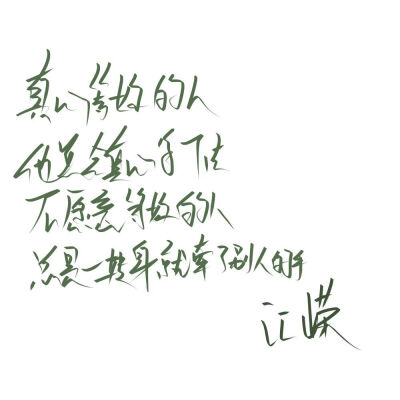 真心等你的人
他总会真心等下去
不愿意等你的人
总是一转身就牵了别人的手
江嵘